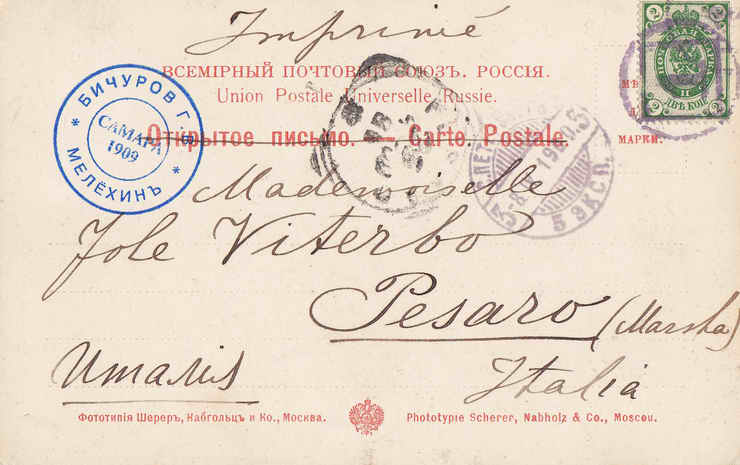 Imprimé
ВСЕМІРНЫЙ ПОЧТОВЫЙ СОЮЗЪ. РОССІЯ.
Union Postale Universelle Russie.
Открытое письмо. — Carte Postale.
МАРКИ.
2 2
ПОЧТОВАЯ МАРКА
2 ДВѢ КОП. 2
* БИЧУРОВ Г.
САМАРА
1909
* МЕЛЁХИНЪ *
5 ЭКСП.
Mademoiselle
Jole Viterbo
Pesaro (Marsha)
Италія
Italia
Фототипія Шереръ, Набгольцъ и Ко., Москва.
Phototypie Scherer, Nabholz & Co., Moscou.